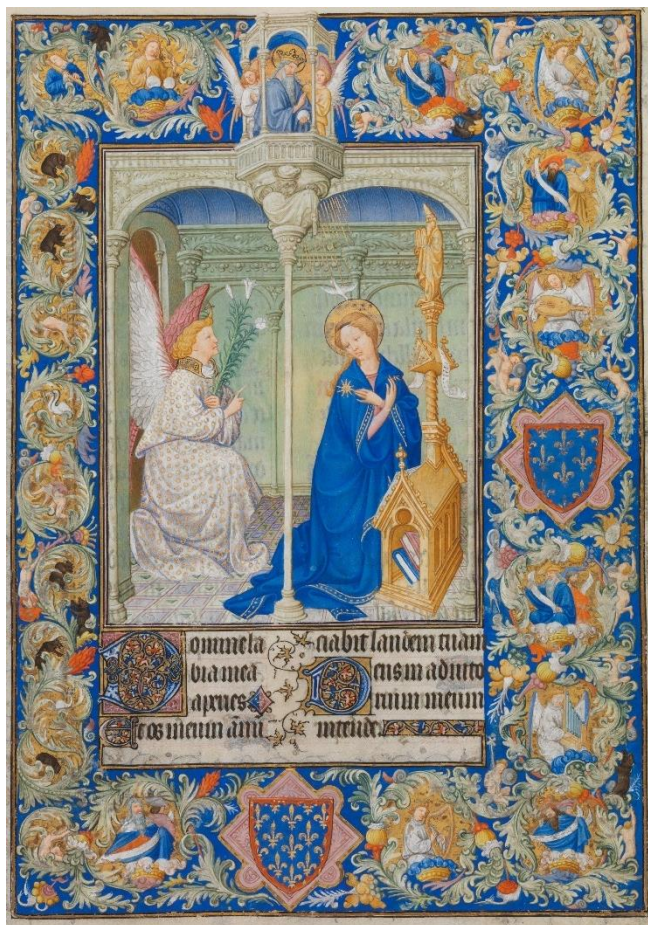 Domine la
bia mea
aperies
Et os meum ānun
ciabit laudem tuam
Deus in adiuto
rium meum
intende